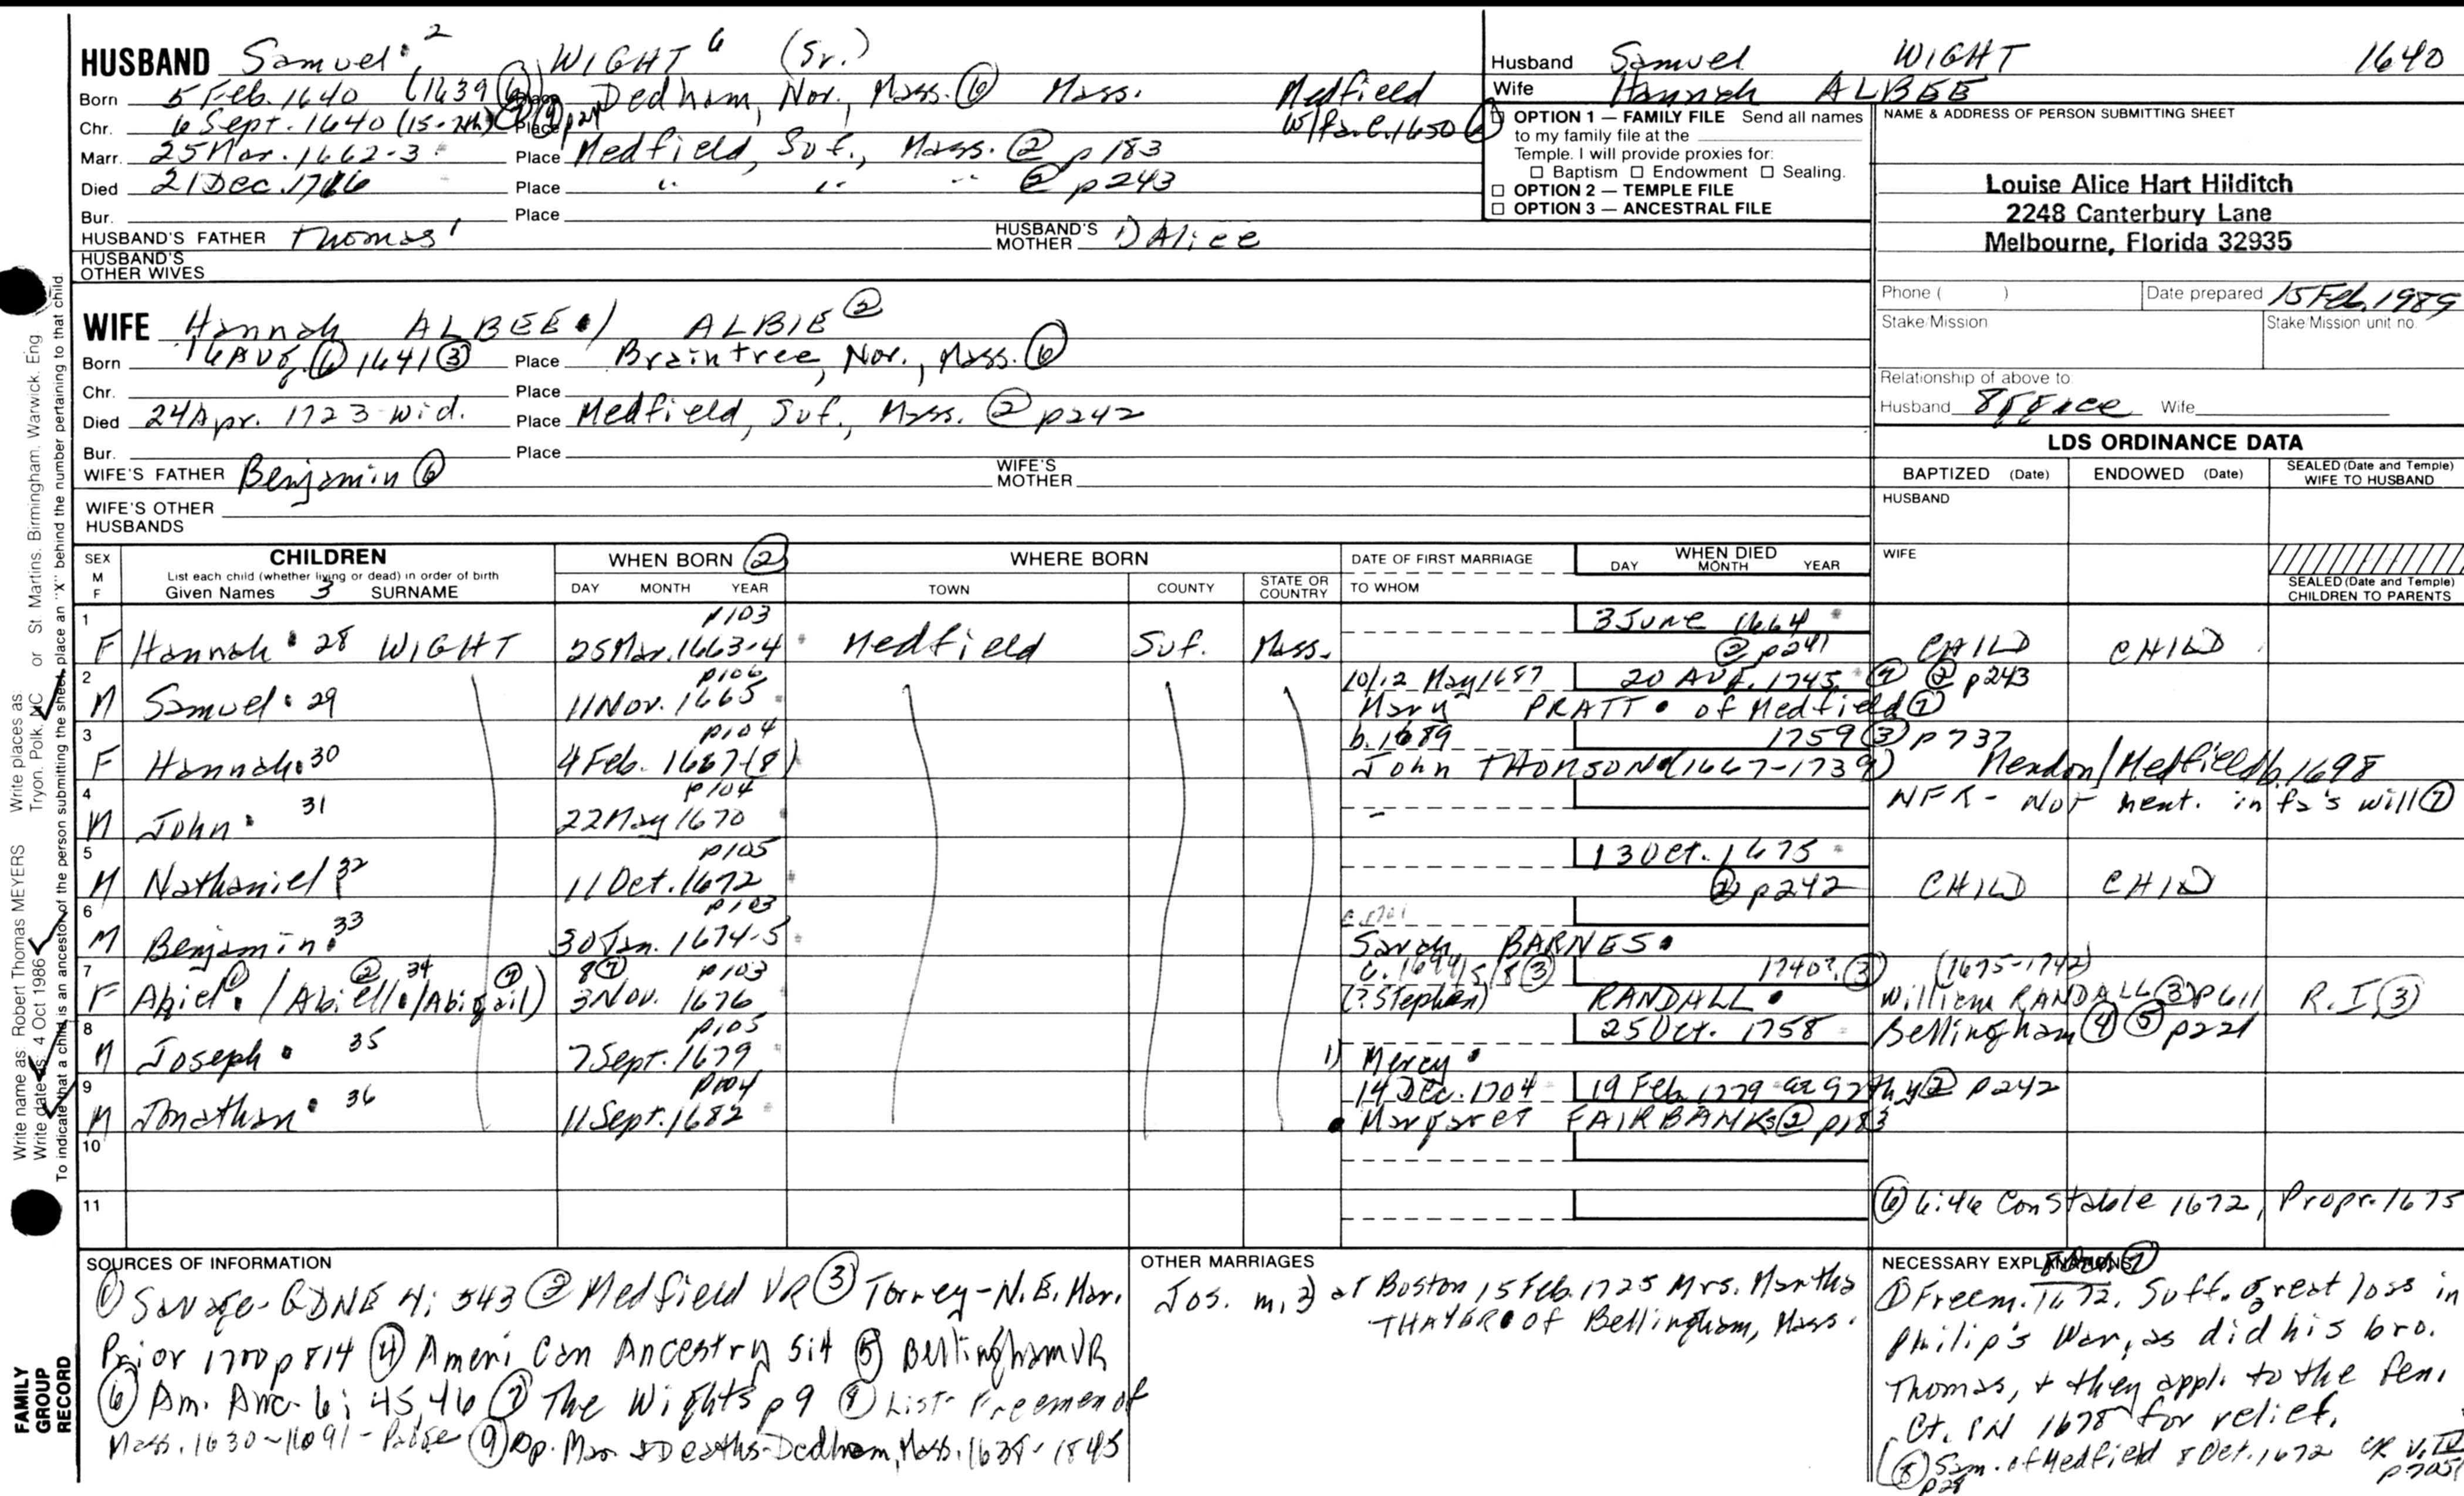 HUSBAND Samuel 2 WIGHT 6 (Sr.)
Born 5 Feb. 1640 (1639 6) Place Dedham, Nor., Mass. 6 Mass. Medfield
Chr. 6 Sept. 1640 (15-7th) 9 p24 Place W/fa. c. 1650 6
Marr. 25 Mar. 1662-3 Place Medfield, Suf., Mass. 2 p183
Died 21 Dec. 1716 Place " " " 2 p243
Bur. Place
HUSBAND'S FATHER Thomas 1 HUSBAND'S MOTHER 1) Alice
HUSBAND'S OTHER WIVES
Husband Samuel WIGHT 1640
Wife Hannah ALBEE
OPTION 1 — FAMILY FILE Send all names
to my family file at the
Temple. I will provide proxies for:
☐ Baptism ☐ Endowment ☐ Sealing.
☐ OPTION 2 — TEMPLE FILE
☐ OPTION 3 — ANCESTRAL FILE
NAME & ADDRESS OF PERSON SUBMITTING SHEET
Louise Alice Hart Hilditch
2248 Canterbury Lane
Melbourne, Florida 32935
Phone ( ) Date prepared 15 Feb. 1989
Stake/Mission Stake/Mission unit no.
Relationship of above to:
Husband Wife
WIFE Hannah ALBEE / ALBIE 2
Born 16 Aug. 6 1641 3 Place Braintree, Nor., Mass. 6
Chr. Place
Died 24 Apr. 1723 wid. Place Medfield, Suf., Mass. 2 p242
Bur. Place
WIFE'S FATHER Benjamin 6 WIFE'S MOTHER
WIFE'S OTHER HUSBANDS
LDS ORDINANCE DATA
BAPTIZED (Date) ENDOWED (Date) SEALED (Date and Temple) WIFE TO HUSBAND
HUSBAND
WIFE
SEALED (Date and Temple) CHILDREN TO PARENTS
SEX M F CHILDREN List each child (whether living or dead) in order of birth Given Names 3 SURNAME
WHEN BORN 2 DAY MONTH YEAR
WHERE BORN TOWN COUNTY STATE OR COUNTRY
DATE OF FIRST MARRIAGE TO WHOM
WHEN DIED DAY MONTH YEAR
1 p103 3 June 1664
F Hannah 28 WIGHT 25 Mar. 1663-4 Medfield Suf. Mass. 2 p241 CHILD CHILD
2 p106 10/12 May 1687 20 Aug. 1745 2 p243
M Samuel 29 11 Nov. 1665 Mary PRATT of Medfield 7
3 p104 b. 1689 1759 3 p737
F Hannah 30 4 Feb. 1667-(8) John THOMSON (1667-1739) Mendon/Medfield b. 1698
4 p104 NFR - Not ment. in fa's will 7
M John 31 22 May 1670 -
5 p105 13 Oct. 1675
M Nathaniel 32 11 Oct. 1672 2 p242 CHILD CHILD
6 p103 c. 1701
M Benjamin 33 30 Jan. 1674-5 Sarah BARNES
7 8 7 p103 c. 1694/5/8 3 1740? 3 (1675-1742)
F Abiel 1 / Abiell 2 34 / Abigail) 3 Nov. 1676 (? Stephen) RANDALL William RANDALL 3 p611 R.I. 3
8 p105 25 Oct. 1758 Bellingham 4 5 p221
M Joseph 35 7 Sept. 1679 1) Mercy
9 p104 14 Dec. 1704 19 Feb. 1779 ae 97th y 2 p242
M Jonathan 36 11 Sept. 1682 Margaret FAIRBANKS 2 p183
10
11 6 6:46 Constable 1672, Propr. 1675
SOURCES OF INFORMATION
1 Savage-GDNE 4: 543 2 Medfield VR 3 Torrey-N.E. Mar.
Prior 1700 p814 4 American Ancestry 5:4 5 Bellingham VR
6 Am. Anc. 6; 45, 46 7 The Wights p9 8 List Freemen of
Mass. 1630-1691-Paige 9 Bp. Mar. & Deaths-Dedham, Mass. 1638-1845
OTHER MARRIAGES
Jos. m. 2) at Boston 15 Feb. 1725 Mrs. Martha
THAYER of Bellingham, Mass.
NECESSARY EXPLANATIONS
1 Freem. 1672. Suff. great loss in
Philip's War, as did his bro.
Thomas, & they appl. to the Gen.
Ct. IN 1678 for relief.
(8 Sam. of Medfield 8 Oct. 1672 CR V. IV
p28
FAMILY GROUP RECORD
Write name as: Robert Thomas MEYERS Write places as Tryon, Polk, NC or St Martins, Birmingham, Warwick, Eng
Write dates as: 4 Oct 1986
To indicate that a child is an ancestor of the person submitting the sheet, place an "X" behind the number pertaining to that child.